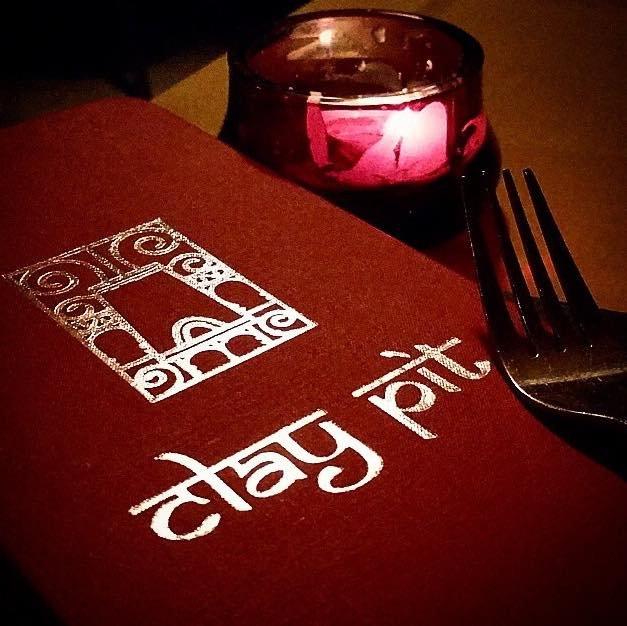 clay pit